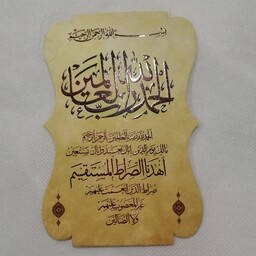 بسم الله الرحمن الرحیم
الحمد لله رب العالمین
الحمد لله رب العالمین الرحمن الرحیم
مالک یوم الدین ایاک نعبد و ایاک نستعین
اهدنا الصراط المستقیم
صراط الذین انعمت علیهم
غیر المغضوب علیهم
ولا الضالین